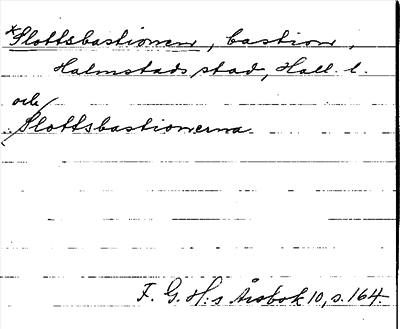 *Slottsbastionen, bastion,
Halmstads stad, Hall. l.
och
Slottsbastionerna.
F. G. H:s Årsbok 10, s. 164.